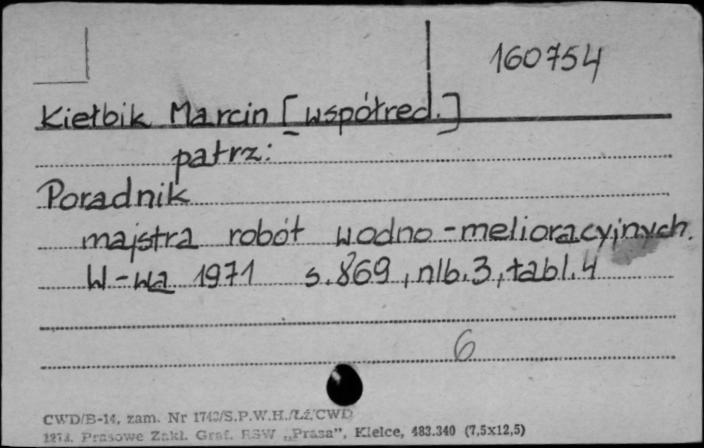 160754
Kiełbik Marcin [współred.]
patrz:
Poradnik
majstra robót wodno-melioracyjnych.
W-wa 1971 s.869, nlb.3, tabl.4
6
CWD/B-14, zam. Nr 1743/S.P.W.H./Łź/CWD
Prasowe Zakł. Graf. RSW „Prasa”, Kielce, 483.340 (7,5x12,5)